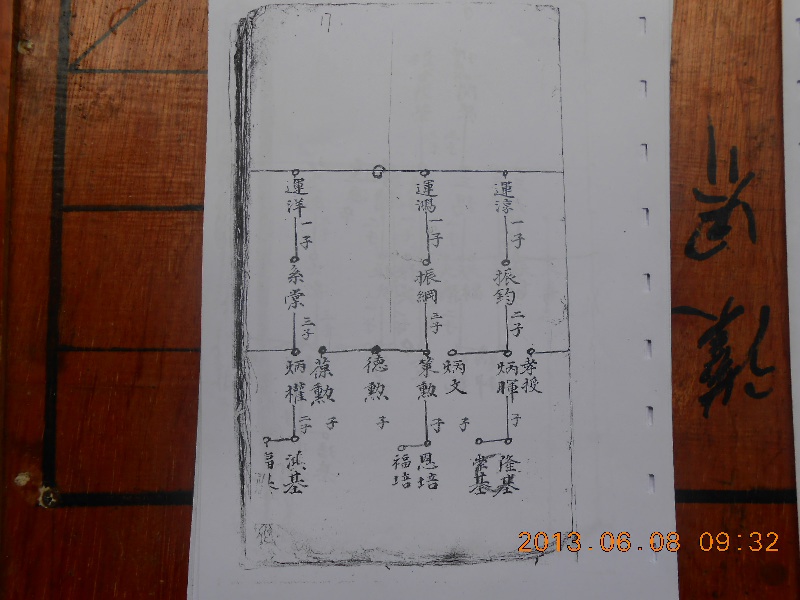 運淳
一子
振鈞
二子
孝授
炳暉
子
隆基
崇基
炳文
子
運鴻
一子
振綱
三子
策勲
子
恩培
福培
德勲
子
葆勲
子
運洋
一子
系棠
三子
炳權
二子
淇基
2013.06.08 09:32